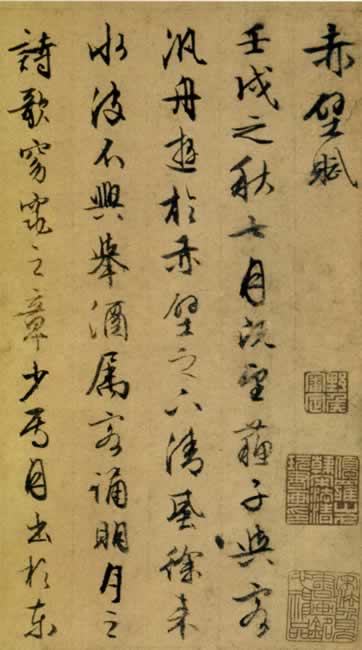 赤壁賦
壬戌之秋七月既望蘇子與客
汎舟遊於赤壁之下清風徐来
水波不興舉酒属客誦明月之
詩歌窈窕之章少焉月出於東